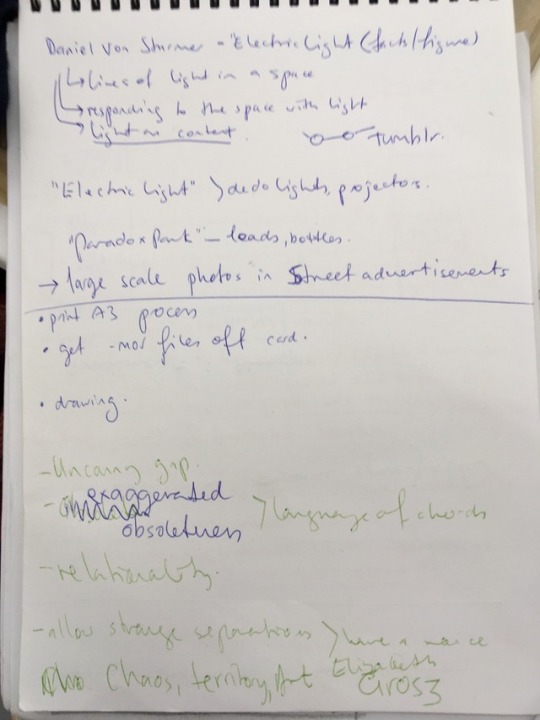 Daniel Von Sturmer - "Electric Light (facts/figure)
↳ lines of light in a space
→ responding to the space with light
→ light as content.
tumblr.
"Electric Light" > dedo lights, projectors.
"Paradox Park" - leads, bottles.
→ large scale photos in Street advertisements
• print A3 process
• get .mov files off card.
• drawing.
- Uncanny
- exaggerated
obsoleteness
> language of
- relationality.
- allow strange separations > have a
Chaos, territory, Art Elizabeth
Grosz